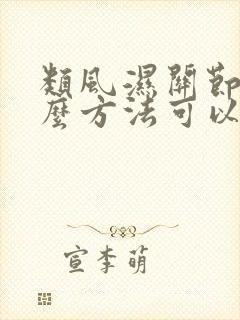 類風濕關節
麼方法可以
宣李萌